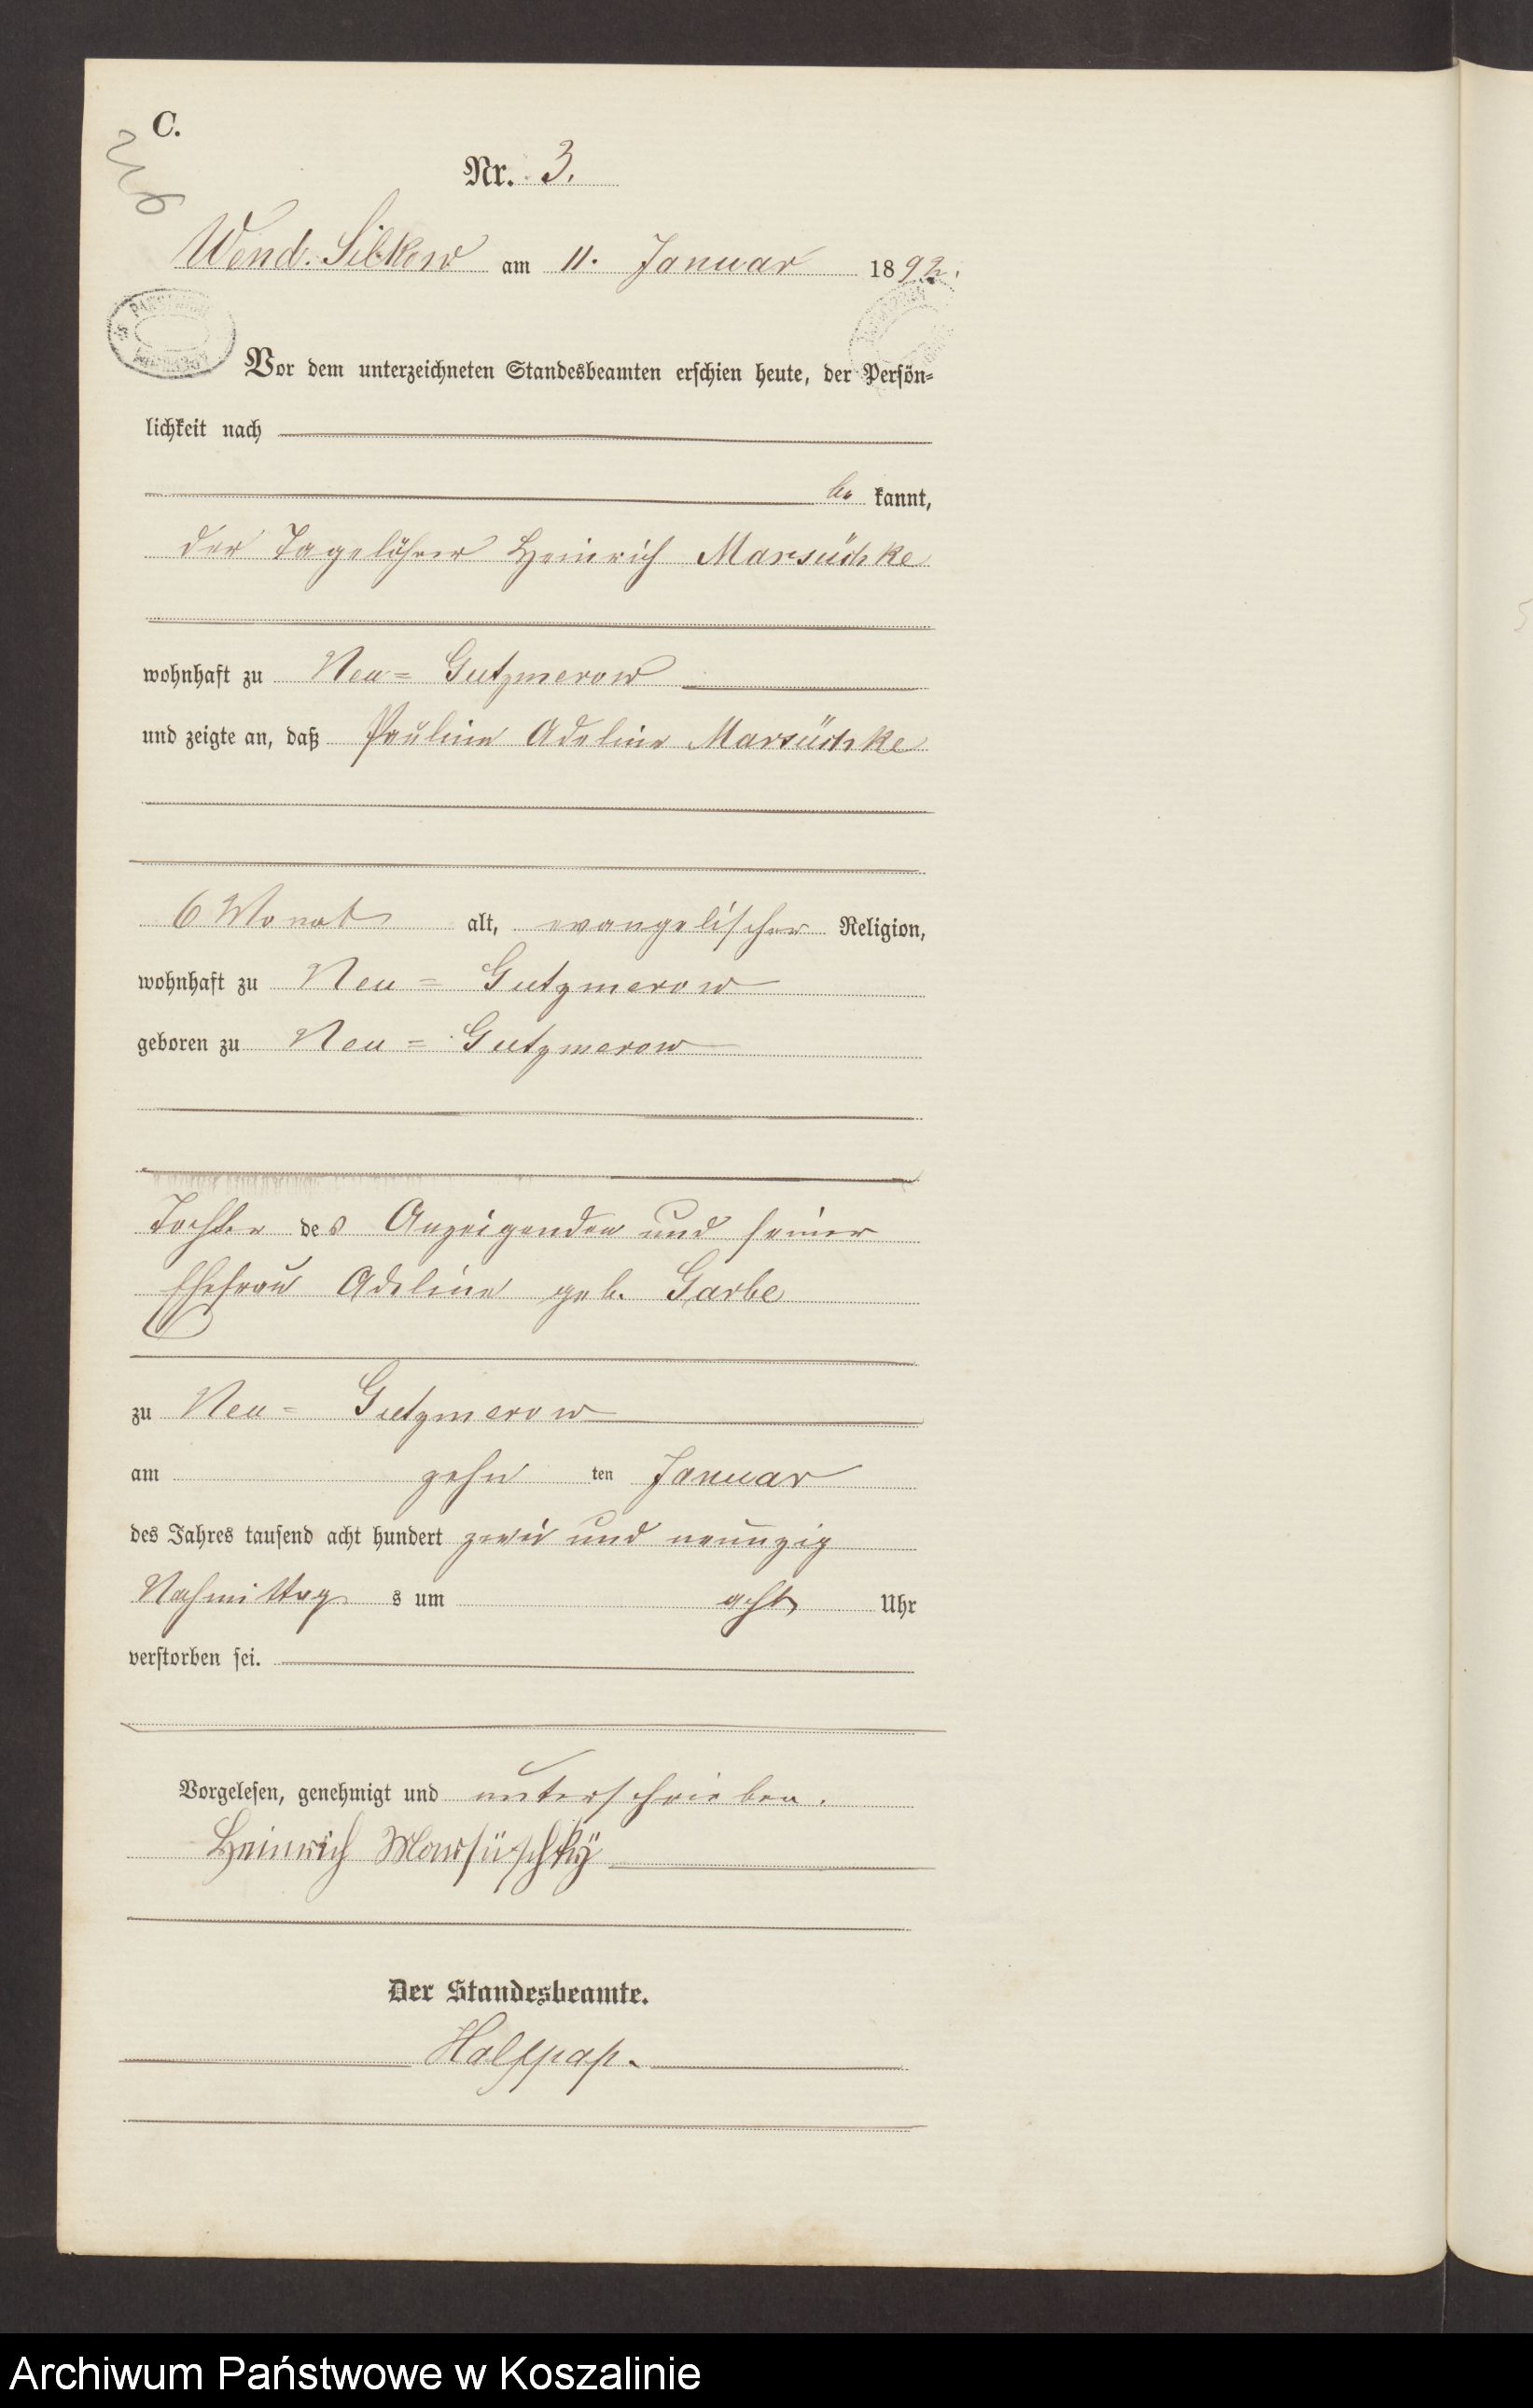 C.
Nr. 3.
Wend. Silkow am 11. Januar 1892.
Vor dem unterzeichneten Standesbeamten erschien heute, der Persön-
lichkeit nach
be kannt,
der Tagelöhner Heinrich Marsüchke
wohnhaft zu Neu= Gutzmerow
und zeigte an, daß Pauline Adeline Marsüchke
6 Monat alt, evangelischer Religion,
wohnhaft zu Neu= Gutzmerow
geboren zu Neu= Gutzmerow
Tochter des Anzeigenden und seiner
Ehefrau Adeline geb. Garbe
zu Neu= Gutzmerow
am zehn ten Januar
des Jahres tausend acht hundert zwei und neunzig
Nachmittag s um acht Uhr
verstorben sei.
Vorgelesen, genehmigt und unterschrieben.
Heinrich Marsüschky
Der Standesbeamte.
Halfpap.
Archiwum Państwowe w Koszalinie